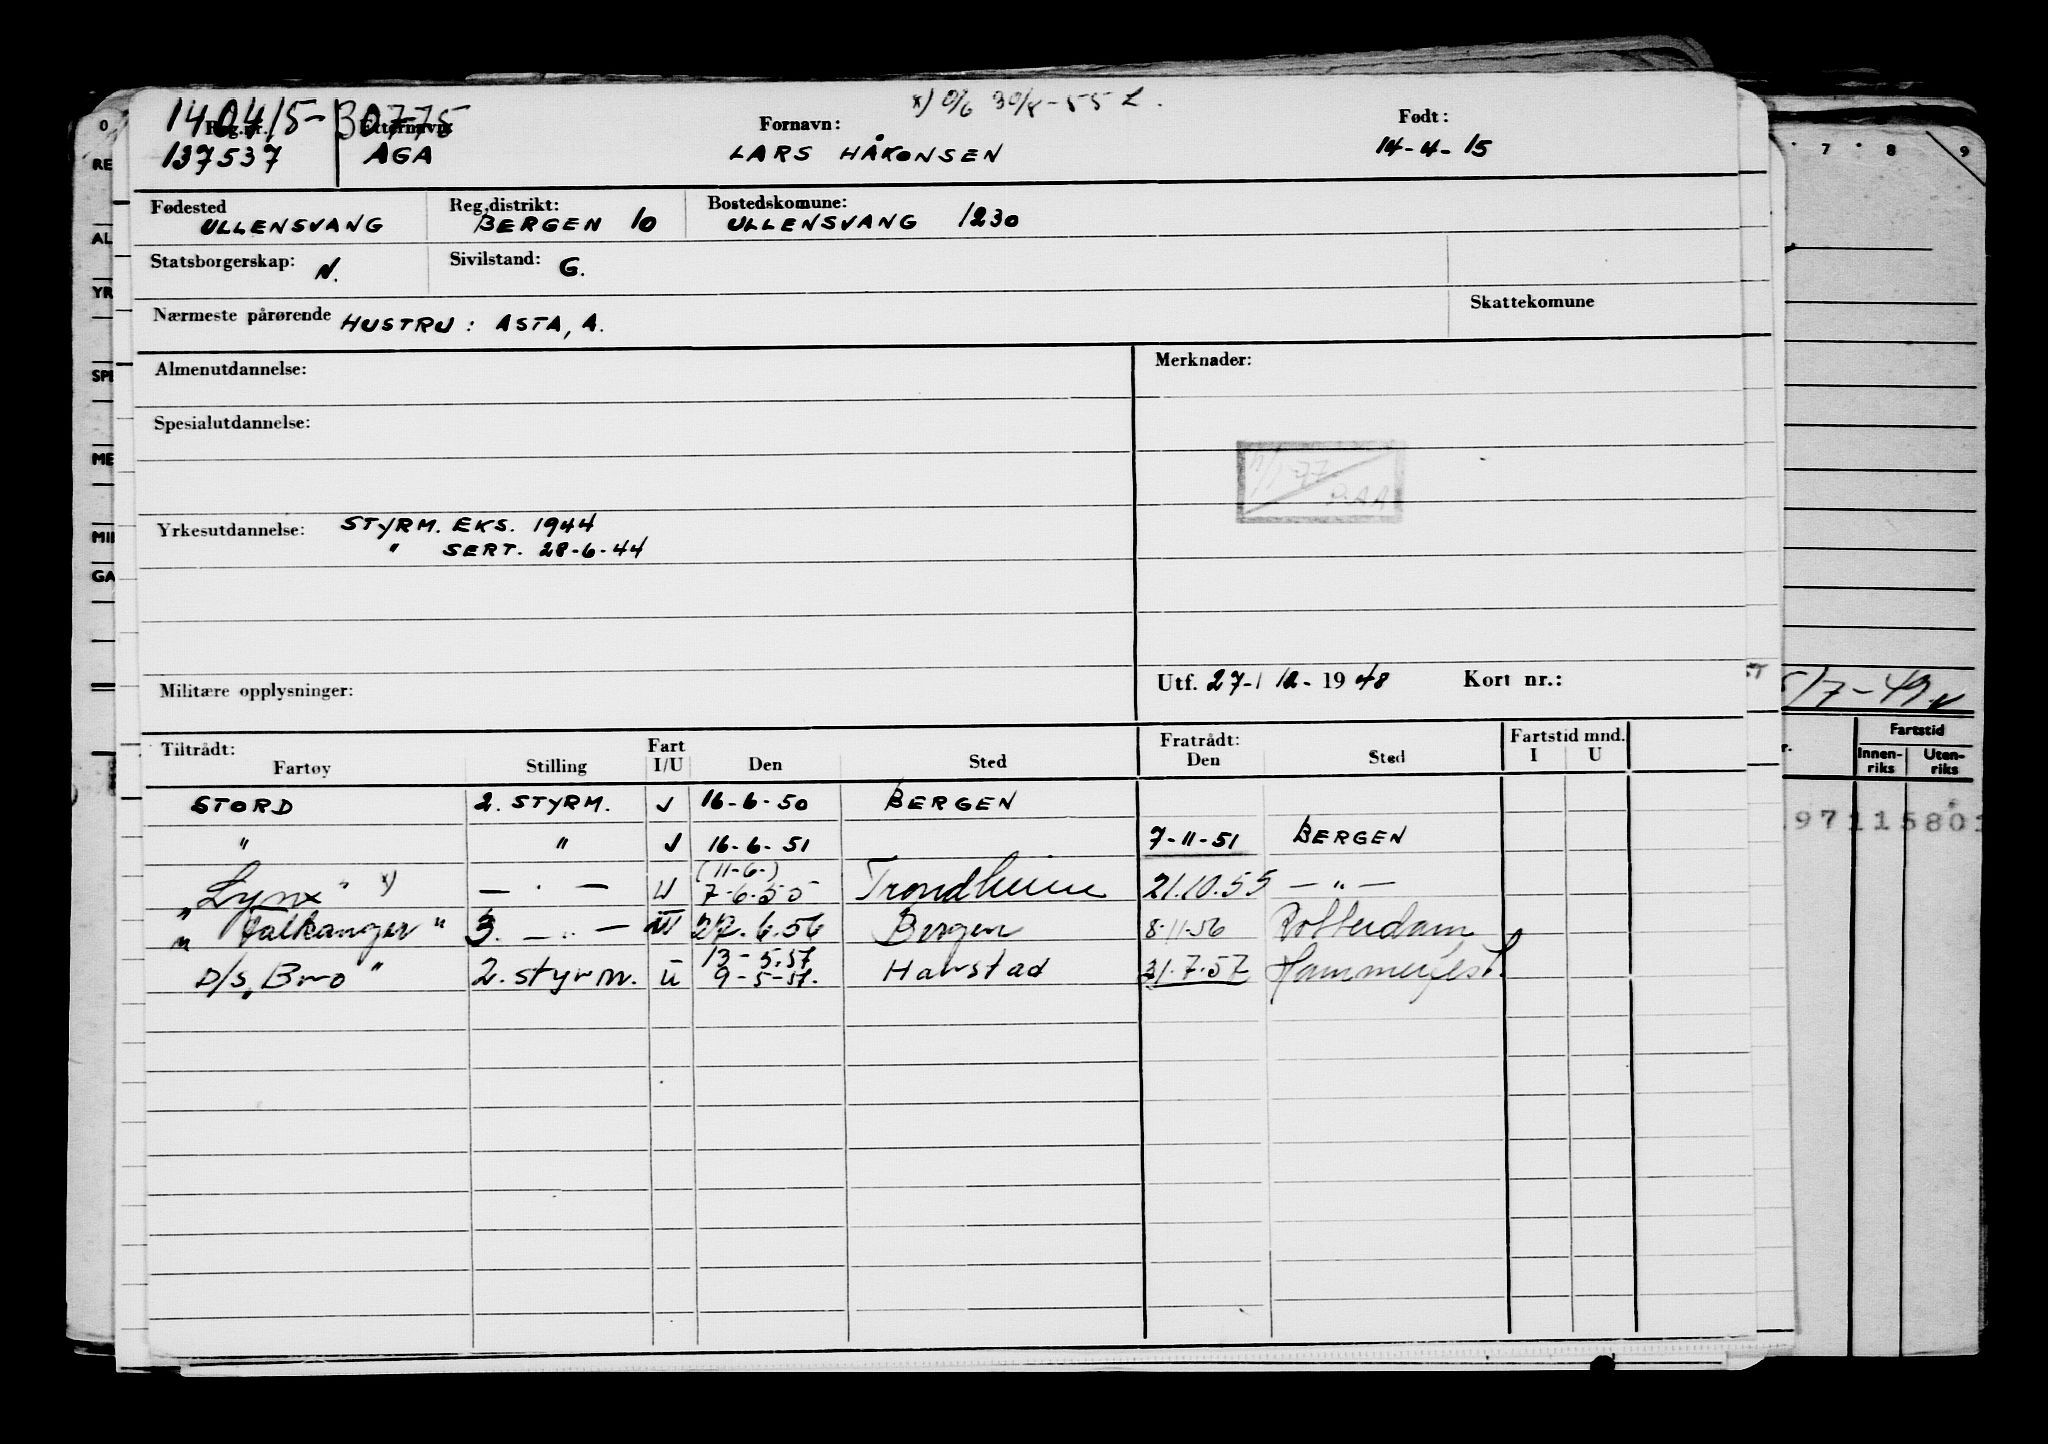 140415-30775
x) 0/6 30/8-55 L.
Reg.nr. Etternavn: Fornavn: Født:
137537 AGA LARS HÅKONSEN 14-4-15
Fødested Reg.distrikt: Bostedskomune:
ULLENSVANG BERGEN 10 ULLENSVANG 1230
Statsborgerskap: N. Sivilstand: G.
Nærmeste pårørende HUSTRU: ASTA, A. Skattekomune
Almenutdannelse: Merknader:
Spesialutdannelse:
Yrkesutdannelse: STYRM. EKS. 1944
" SERT. 28-6-44
Militære opplysninger: Utf. 27-12-1948 Kort nr.:
Tiltrådt: Fart Fratrådt: Fartstid mnd.
Fartøy Stilling I/U Den Sted Den Sted I U
STORD 2. STYRM. U 16-6-50 BERGEN
" " U 16-6-51 7-11-51 BERGEN
(11-6-)
"Lynx" x) — " — U 7-6-55 Trondheim 21.10.55 — " —
"Falkanger" 3. — " — U 27.6.56 Bergen 8-11-56 Rotterdam
13-5.57
D/S "Bro" 2. styrm. U 9-5-57. Harstad 31.7.57 Hammerfest.
7 8 9
5/7-49
Fartstid
Innen-riks Uten-riks
97115801
0
RE
AL
YR
SPE
ME
MIL
GA